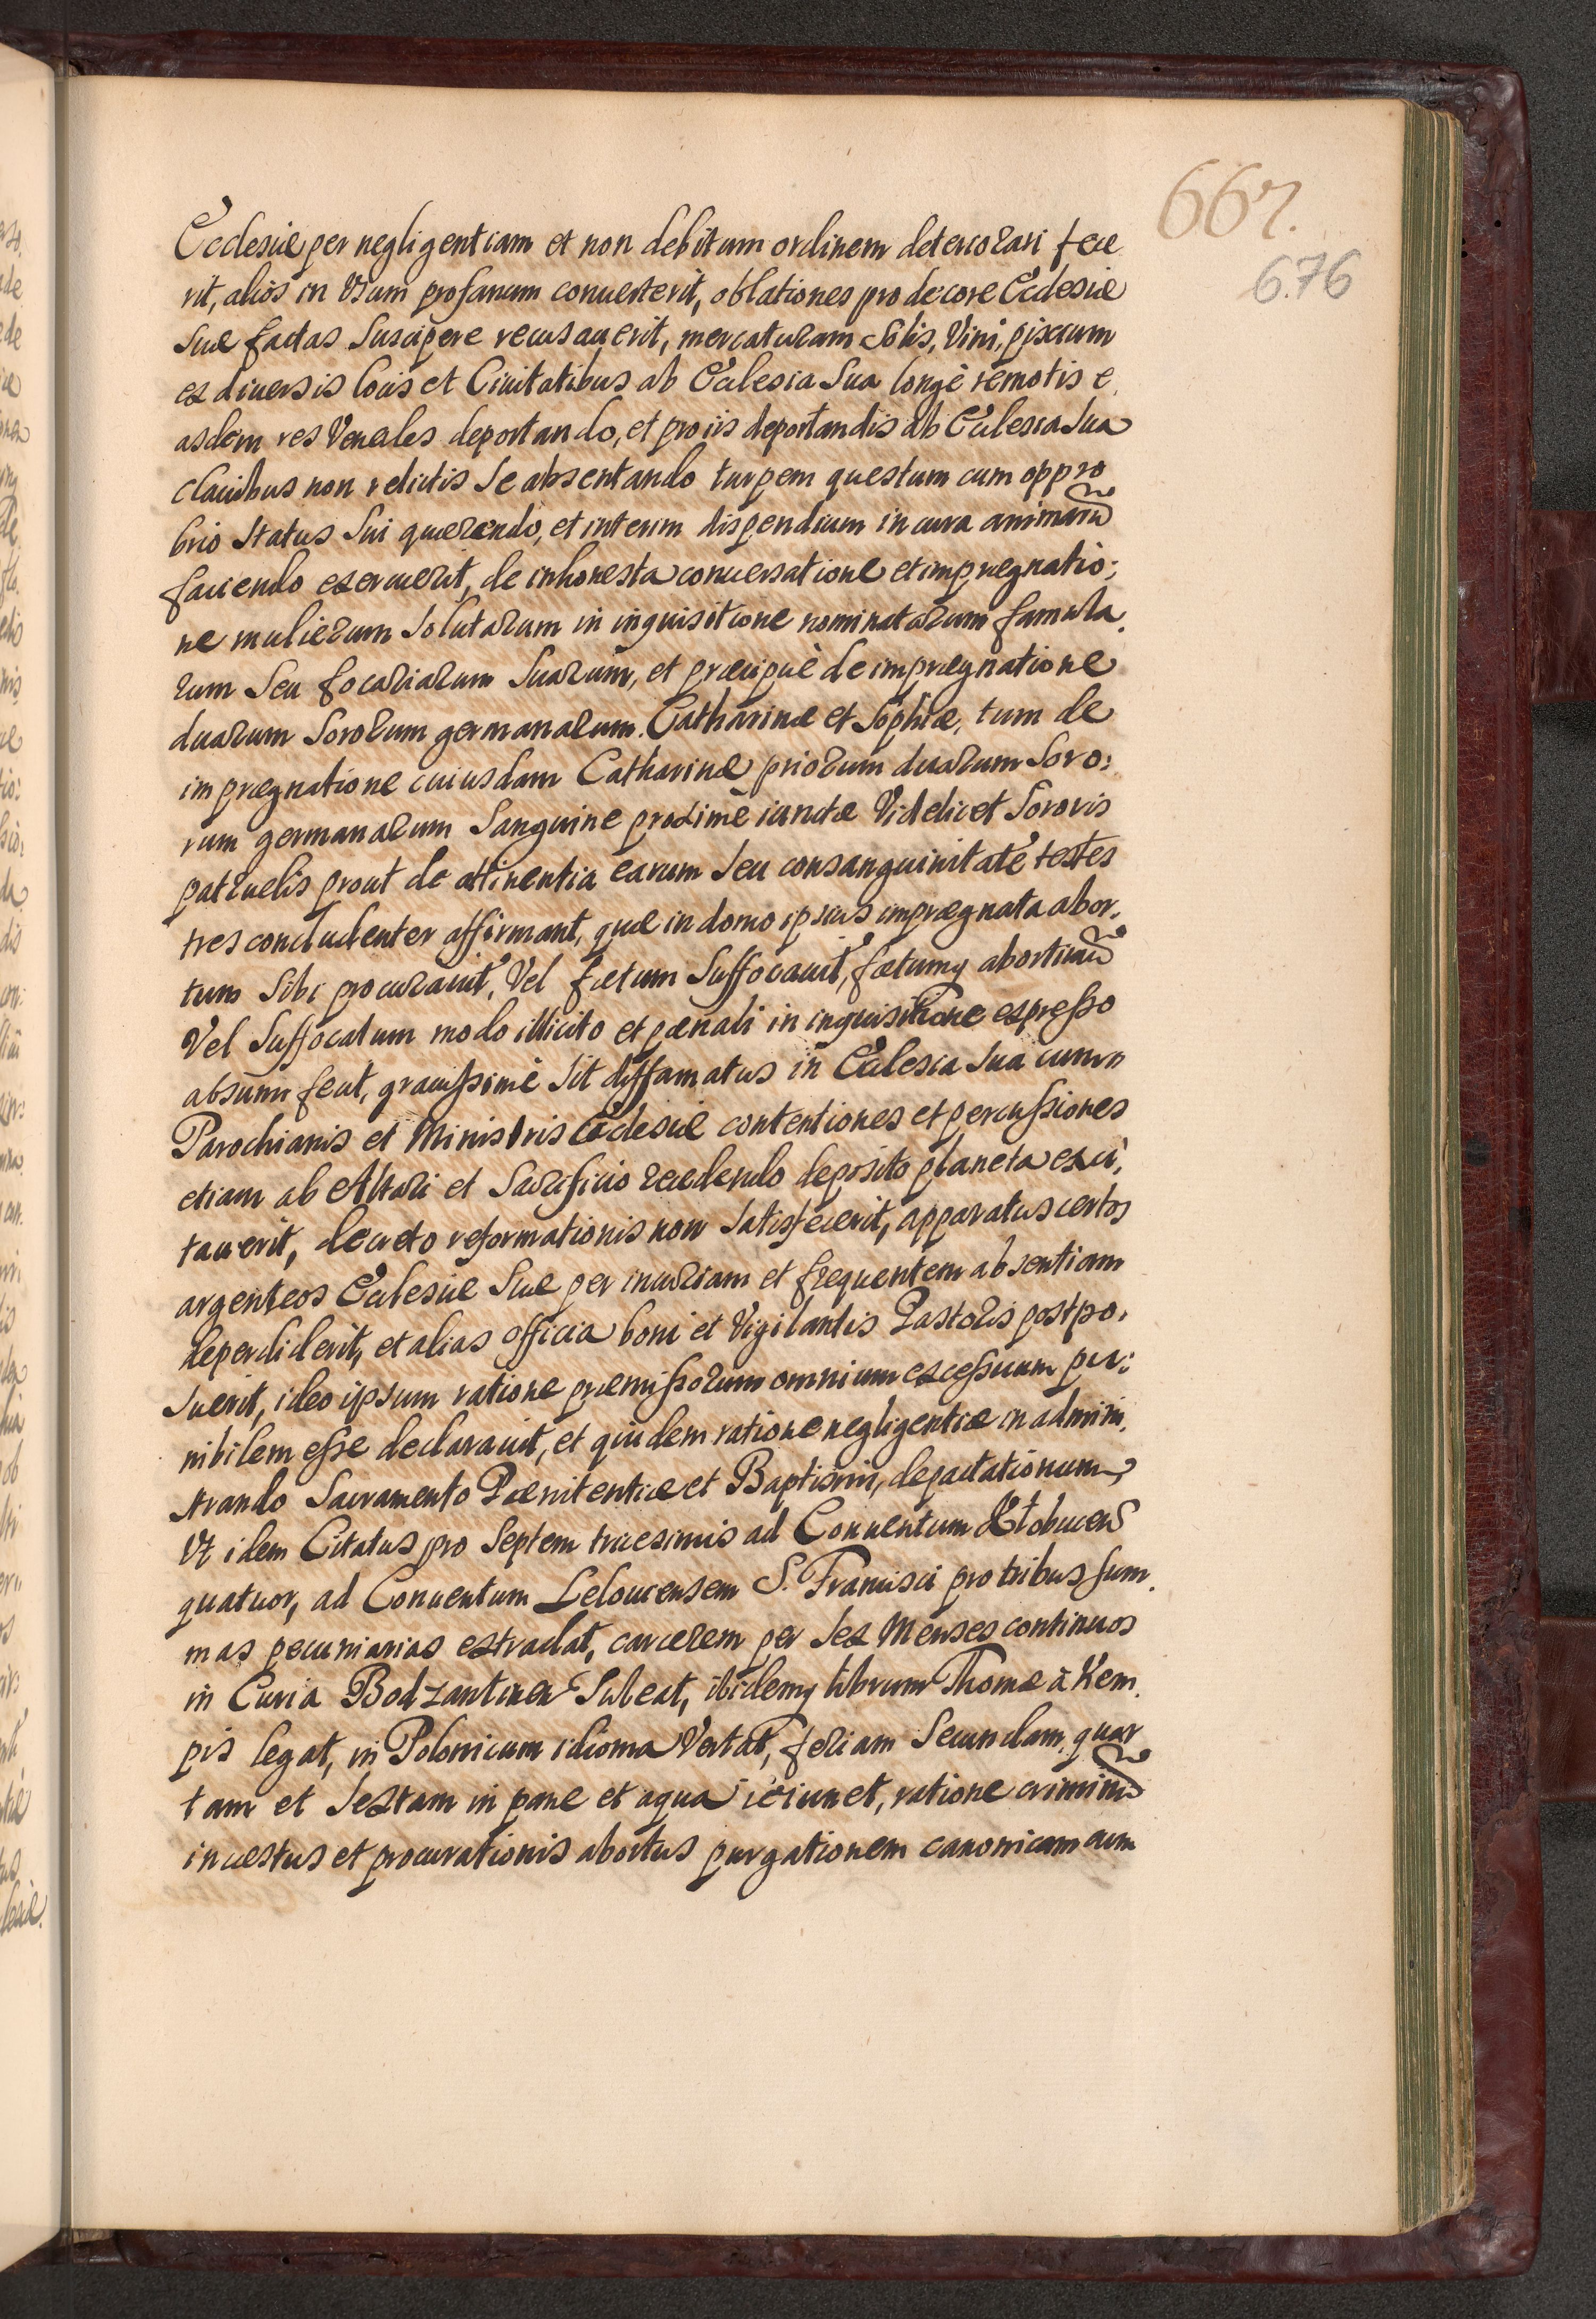 667.
676
Ecclesiæ per negligentiam et non debitum ordinem deteriorari fece
rit, alios in Usum profanum conuerterit, oblationes pro decore Ecclesiæ
Suæ factas Suscipere recusauerit, mercaturam Salis, Vini, piscium
ex diuersis locis et Ciuitatibus ab Ecclesia Sua longè remotis e.
asdem res Venales deportando, et pro iis deportandis ab Ecclesia Sua
clauibus non relictis Se absentando turpem questum cum oppro
brio Status Sui quærendo, et interim dispendium in cura animarũ
faciendo exercuerit, de inhonesta conuersatione et imprægnatio:
ne mulierum Solutarum in inquisitione nominatarum famula.
rum Seu focariarum Suarum, et præcipuè de imprægnatione
duarum Sororum germanarum Catharinæ et Sophiæ, tum de
imprægnatione cuiusdam Catharinæ priorum duarum Soro:
rum germanarum Sanguine proximè iunctæ Videlicet Sororis
patruelis prout de attinentia earum Seu consanguinitate testes
tres concludenter affirmant, quæ in domo ipsius imprægnata abor.
tum Sibi procurauit, Vel fætum Suffocauit, fætumq abortiuũ
Vel Suffocatum modo illicito et pœnali in inquisitione expresso
absumi fecit, grauissimè Sit diffamatus in Ecclesia Sua cum
Parochianis et Ministris Ecclesiæ contentiones et percussiones
etiam ab Altari et Sacrificio recedendo deposito planeta exci,
tauerit, decreto reformationis non Satisfecerit, apparatus certos
argenteos Ecclesiæ Suæ per incuriam et frequentem absentiam
deperdiderit, et alias officia boni et Vigilantis Pastoris postpo.
suerit, ideo ipsum ratione præmissorum omnium excessuum pu:
nibilem esse declarauit, et quidem ratione negligentiæ in admini.
strando Sacramento Pœnitentiæ et Baptismi, depactationum,
Vt idem Citatus pro Septem tricesimis ad Conuentum
quatuor, ad Conuentum Lelouiensem S. Francisci pro tribus Sum.
mas pecuniarias extradat, carcerem per Sex Menses continuos
in Curia Bodzantinen Subeat, ibidemq librum Thomæ à Kem.
pis legat, in Polonicum idioma Vertat, feriam Secundam, quar
tam et Sextam in pane et aqua ieiunet, ratione criminũ
incæstus et procurationis abortus purgationem canonicam cum